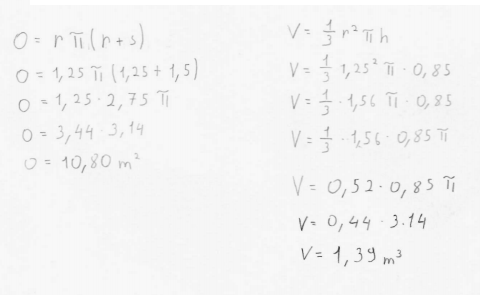 O = r π (r + s)
O = 1,25 π (1,25 + 1,5)
O = 1,25 · 2,75 π
O = 3,44 · 3,14
O = 10,80 m²
V = 1/3 r² π h
V = 1/3 1,25² π · 0,85
V = 1/3 · 1,56 π · 0,85
V = 1/3 · 1,56 · 0,85 π
V = 0,52 · 0,85 π
V = 0,44 · 3.14
V = 1,39 m³